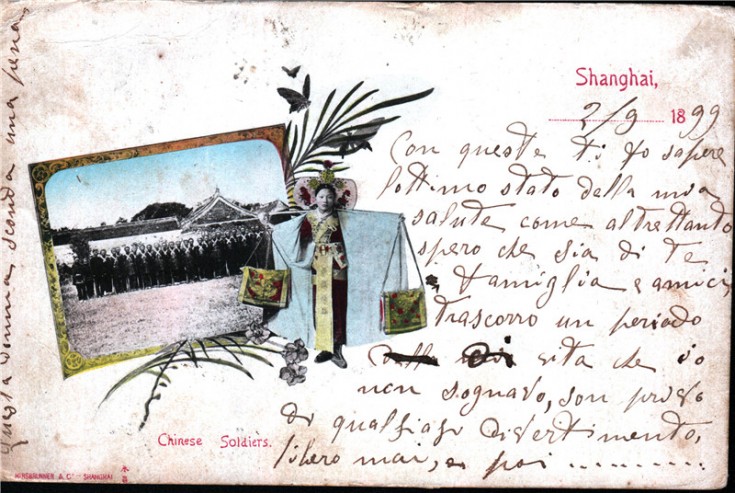 Shanghai,
2/9 1899
Con queste ti fo sapere
lottimo stato della mia
salute come altrettanto
spero che sia di te
famiglia e amici,
trascorro un periodo
vita che io
non sognavo, son privo
di qualsiasi divertimento,
libero mai, e poi ..........
Chinese Soldiers.
SHANGHAI
Questa donna, scarda una pena